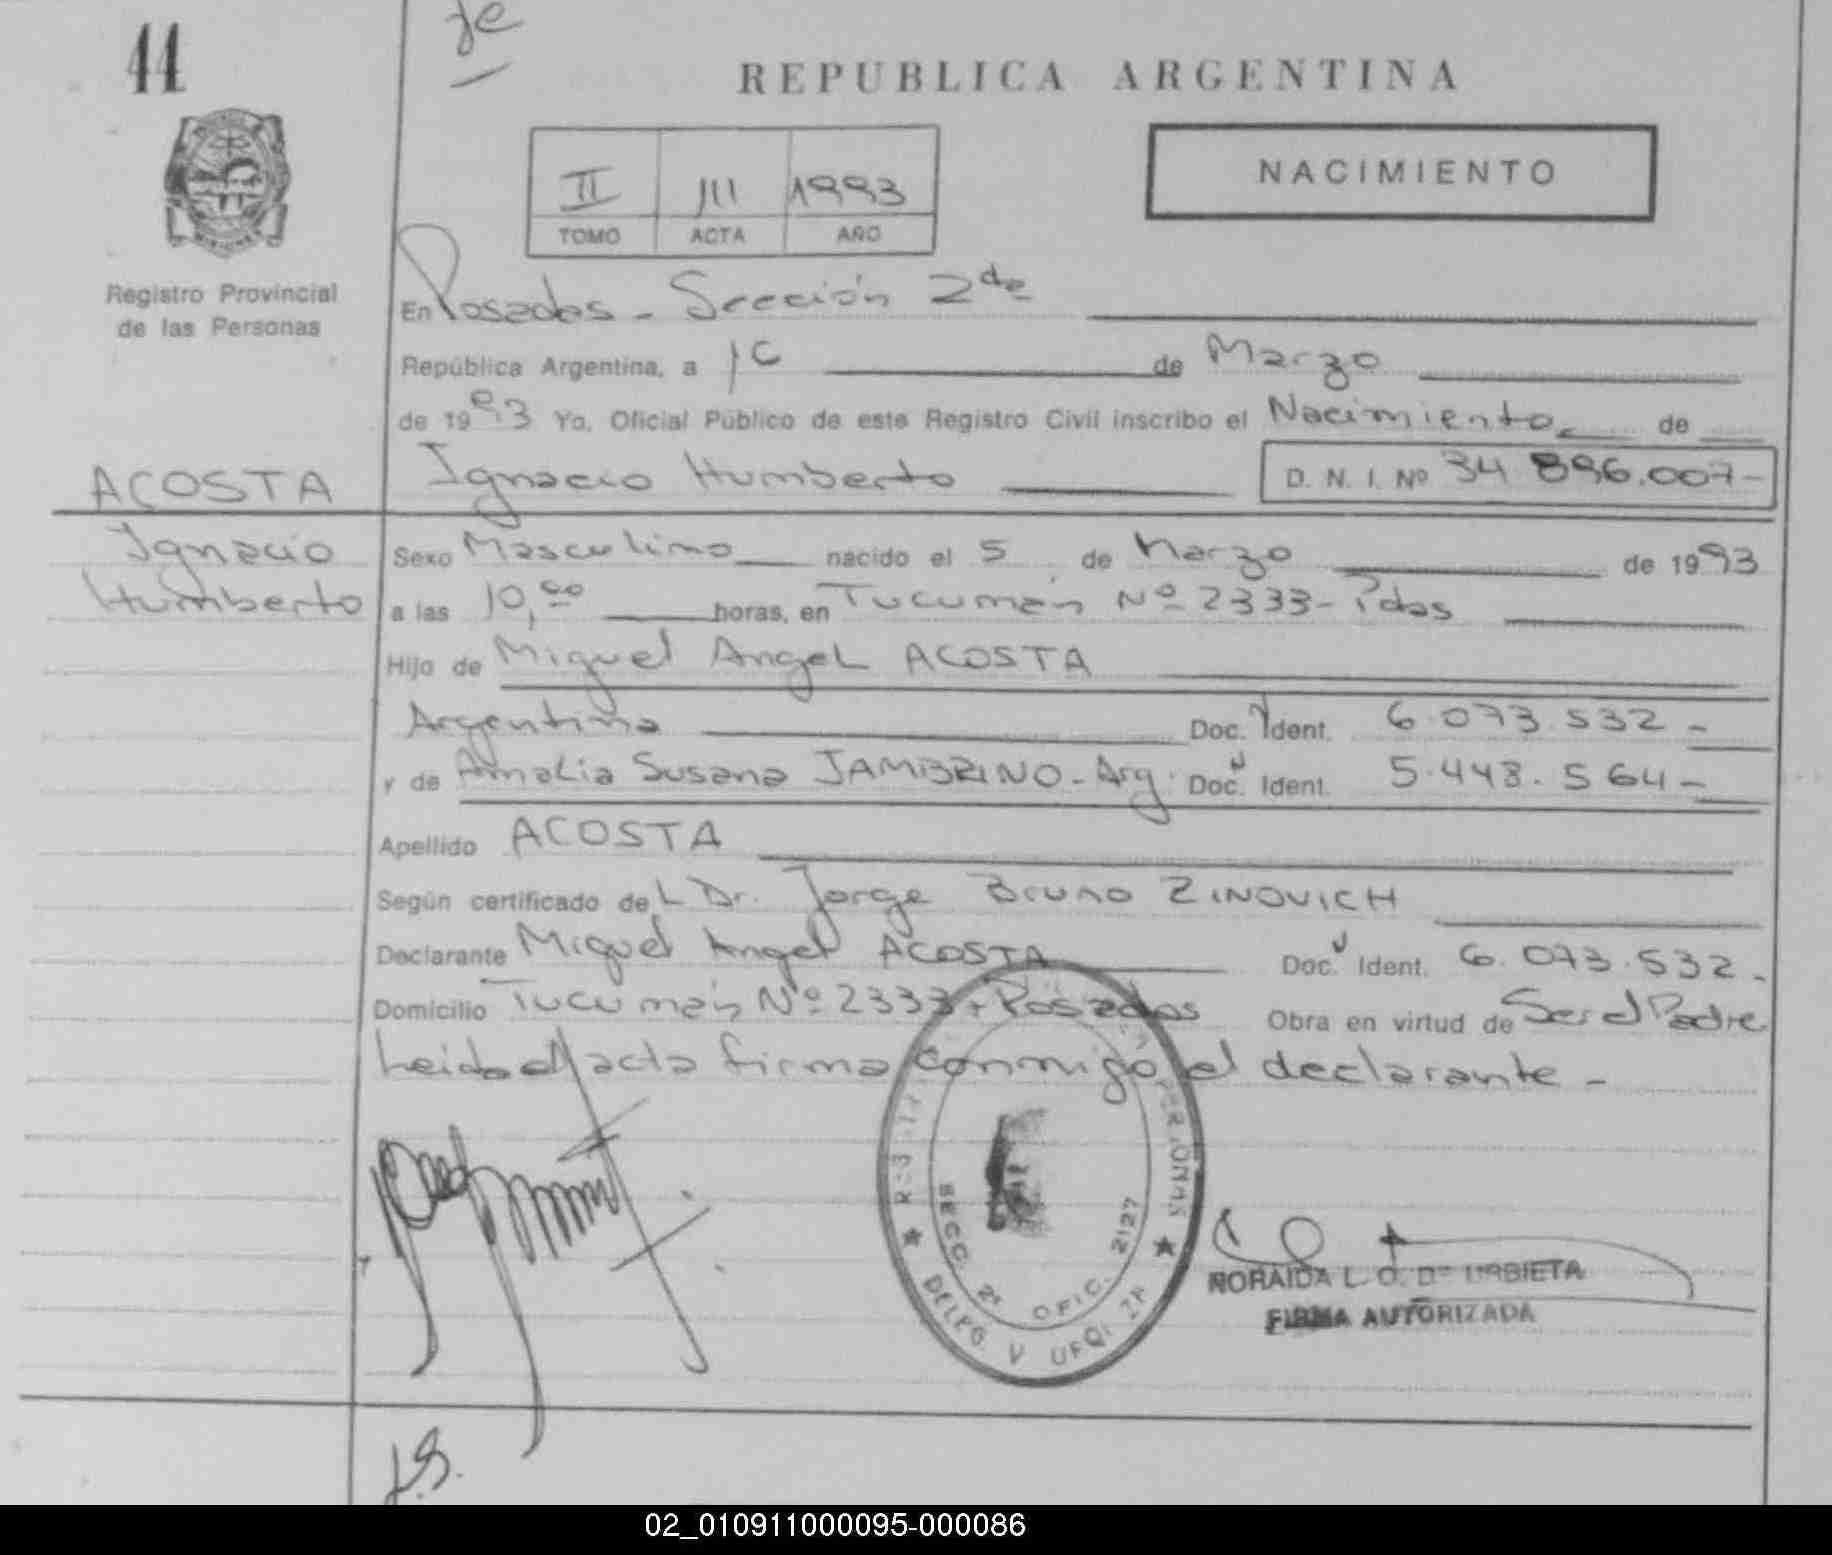 44
REPUBLICA ARGENTINA
NACIMIENTO
II 111 1993
TOMO ACTA AÑO
Registro Provincial
de las Personas
En Posadas - Sección 2da
República Argentina, a de Marzo
de 1993 Yo, Oficial Público de este Registro Civil inscribo el Nacimiento de
ACOSTA Ignacio Humberto D. N. I. Nº 34 896.007-
Ignacio Sexo Masculino nacido el 5 de Marzo de 1993
Humberto a las 10,00 horas, en Tucumán Nº 2333 - Pdas
Hijo de Miguel Angel ACOSTA
Argentina Doc. Ident. 6.073.532 -
y de Amalia Susana JAMBRINO - Arg. Doc. Ident. 5.448.564 -
Apellido ACOSTA
Según certificado del Dr. Jorge Bruno ZINOVICH
Declarante Miguel Angel ACOSTA Doc. Ident. 6.073.532.
Domicilio Tucumán Nº 2333 - Posadas Obra en virtud de Ser el Padre
Leida el acta firma conmigo el declarante -
PERSONAS
SECC. 2ª OFIC. 2127
DELEG. V
NORAIDA L. O. DE URBIETA
FIRMA AUTORIZADA
02_010911000095-000086